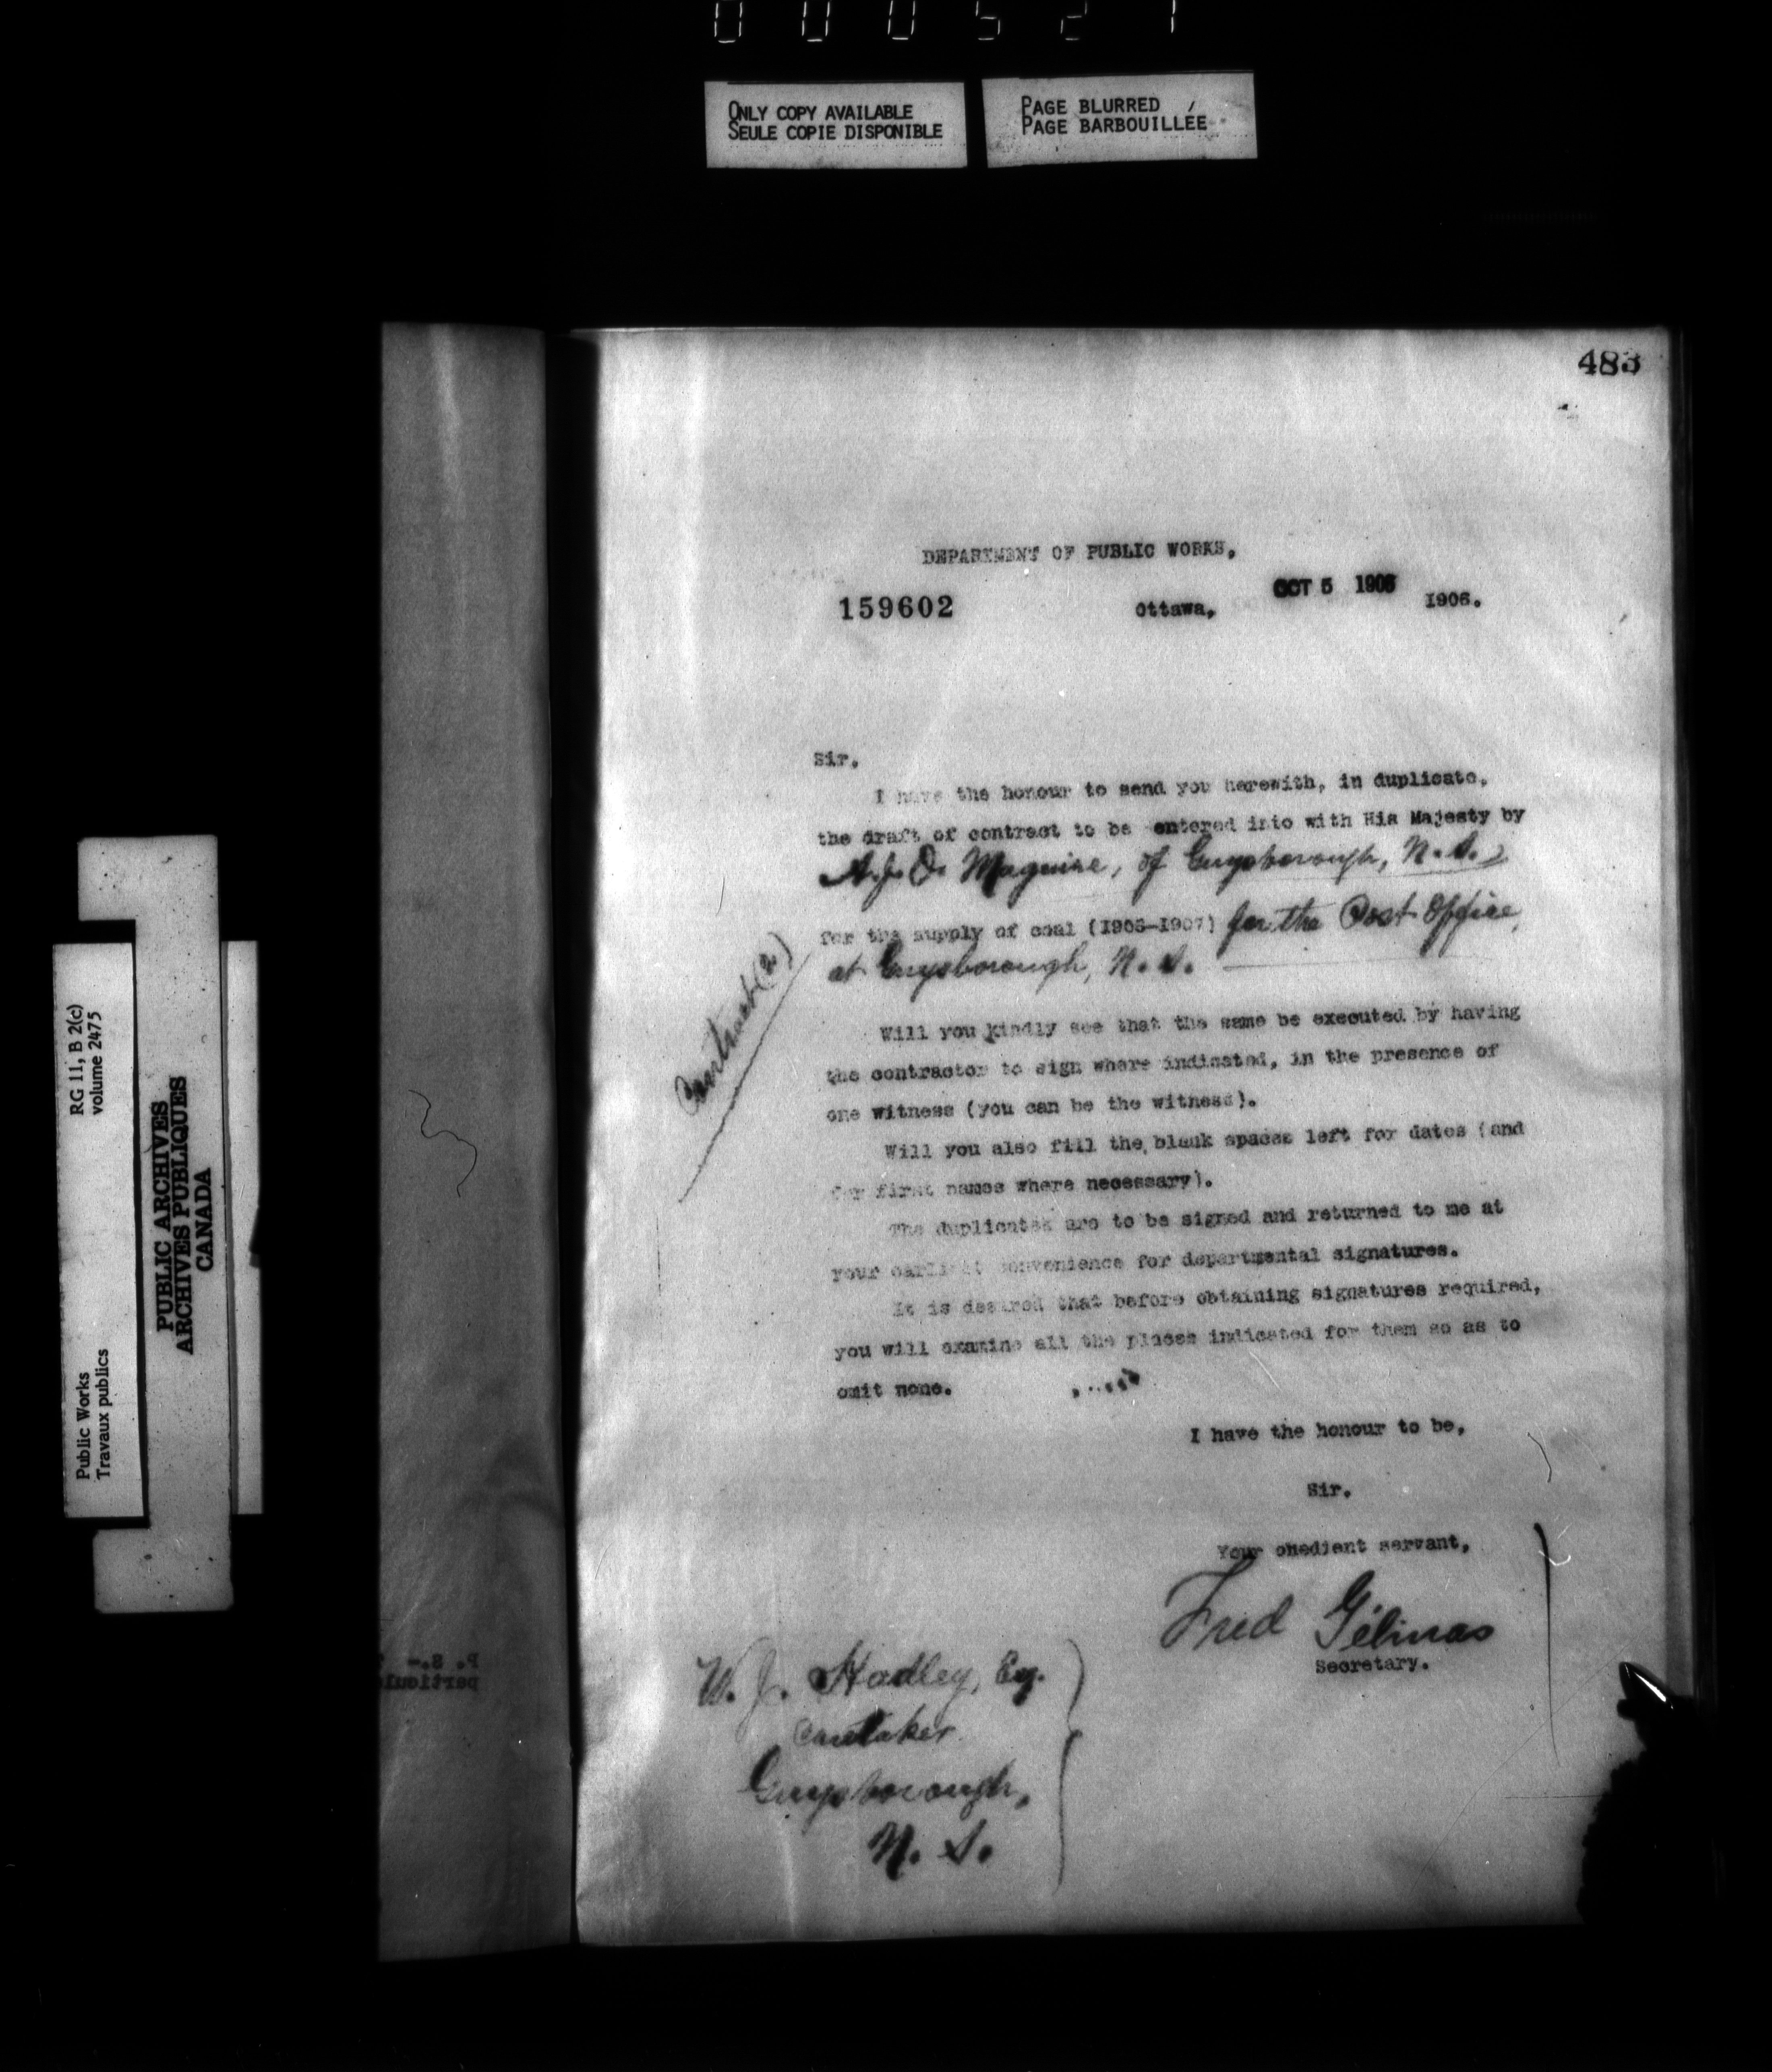 000521
ONLY COPY AVAILABLE
SEULE COPIE DISPONIBLE
PAGE BLURRED
PAGE BARBOUILLÉE
483
DEPARTMENT OF PUBLIC WORKS,
159602 Ottawa, OCT 5 1906 1906.
Sir,
I have the honour to send you herewith, in duplicate,
the draft of contract to be entered into with His Majesty by
A. J. O. Maguire, of Guysborough, N.S.,
for the supply of coal (1906-1907) for the Post Office,
at Guysborough, N.S.
Contract (2)
Will you kindly see that the same be executed by having
the contractor to sign where indicated, in the presence of
one witness (you can be the witness).
Will you also fill the blank spaces left for dates (and
for first names where necessary).
The duplicates are to be signed and returned to me at
your earliest convenience for departmental signatures.
It is desired that before obtaining signatures required,
you will examine all the places indicated for them so as to
omit none.
I have the honour to be,
Sir,
Your obedient servant,
Fred Gélinas
Secretary.
W. J. Hadley, Esq.
Caretaker
Guysborough,
N. S.
P. S.-
particul
RG 11, B 2(c)
volume 2475
Public Works
Travaux publics
PUBLIC ARCHIVES
ARCHIVES PUBLIQUES
CANADA